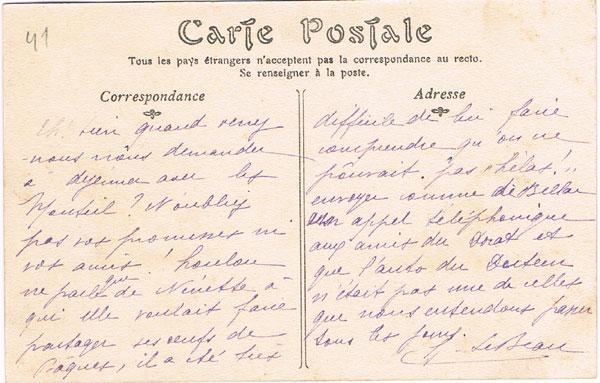 41
Carte Postale
Tous les pays étrangers n'acceptent pas la correspondance au recto.
Se renseigner à la poste.
Correspondance
Eh! rien quand venez
nous nous demander
à avec les
Monteil? N'oubliez
pas vos promesses ni
vos amis! Loulou
ne parle que de Ninette à
qui elle voulait faire
partager ses œufs de
Pâques, il a été très
Adresse
difficile de lui faire
comprendre qu'on ne
pouvait pas hélas!!
envoyer comme de Bellac
un appel téléphonique
aux amis du Dorat et
que l'auto du Docteur
n'était pas une de celles
que nous entendons passer
tous les jours.
LeBeau